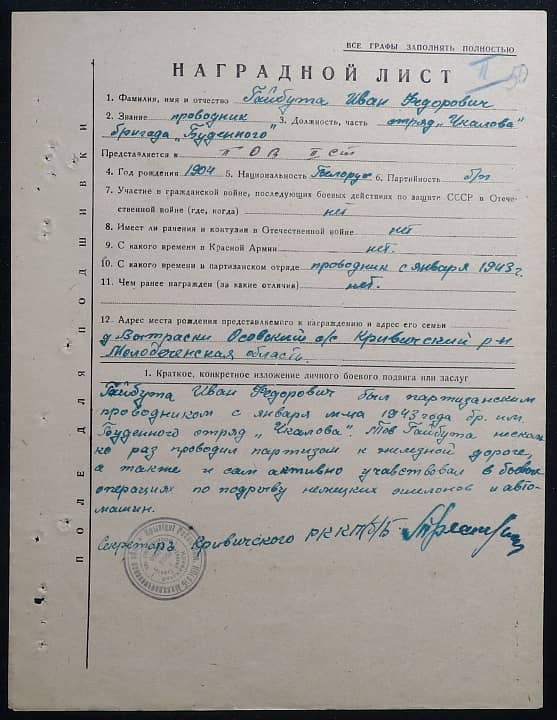 ВСЕ ГРАФЫ ЗАПОЛНЯТЬ ПОЛНОСТЬЮ
НАГРАДНОЙ ЛИСТ
1. Фамилия, имя и отчество Гайбута Иван Федорович
2. Звание проводник 3. Должность, часть отряд „Чкалова"
бригада „Буденного"
Представляется к ПОВ II ст
4. Год рождения 1904 5. Национальность Белорус 6. Партийность б/п
7. Участие в гражданской войне, последующих боевых действиях по защите СССР в Отече-
ственной войне (где, когда) нет
8. Имеет ли ранения и контузии в Отечественной войне нет
9. С какого времени в Красной Армии нет.
10. С какого времени в партизанском отряде проводник с января 1943 г.
11. Чем ранее награжден (за какие отличия) нет.
12. Адрес места рождения представляемого к награждению и адрес его семьи
д. Осовский с/с Кривичский р-н
Молодеченская область.
1. Краткое, конкретное изложение личного боевого подвига или заслуг
Гайбута Иван Федорович был партизанским
проводником с января м-ца 1943 года бр. им.
Буденного отряд „Чкалова". Тов Гайбута несколь
ко раз проводил партизом к железной дороге,
а также и сам активно учавствовал в боевых
операциях по подрыву немецких эшелонов и авто-
машин.
Секретарь Кривичского РККП/б/Б
ПОЛЕ ДЛЯ ПОДШИВКИ